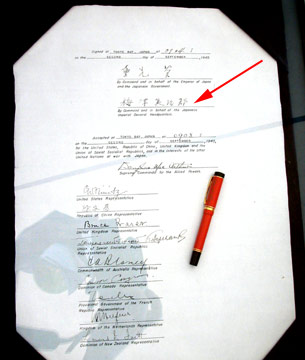 Signed at TOKYO BAY, JAPAN at 0904 I
on the SECOND day of SEPTEMBER, 1945.
重光葵
By Command and in behalf of the Emperor of Japan
and the Japanese Government.
梅津美治郎
By Command and in behalf of the Japanese
Imperial General Headquarters.
Accepted at TOKYO BAY, JAPAN at 0908 I
on the SECOND day of SEPTEMBER, 1945,
for the United States, Republic of China, United Kingdom and the
Union of Soviet Socialist Republics, and in the interests of the other
United Nations at war with Japan.
Douglas MacArthur
Supreme Commander for the Allied Powers.
C.W. Nimitz
United States Representative
Republic of China Representative
Bruce Fraser
United Kingdom Representative
Union of Soviet Socialist Republics
Representative
Commonwealth of Australia Representative
Dominion of Canada Representative
Provisional Government of the French
Republic Representative
Kingdom of the Netherlands Representative
Dominion of New Zealand Representative